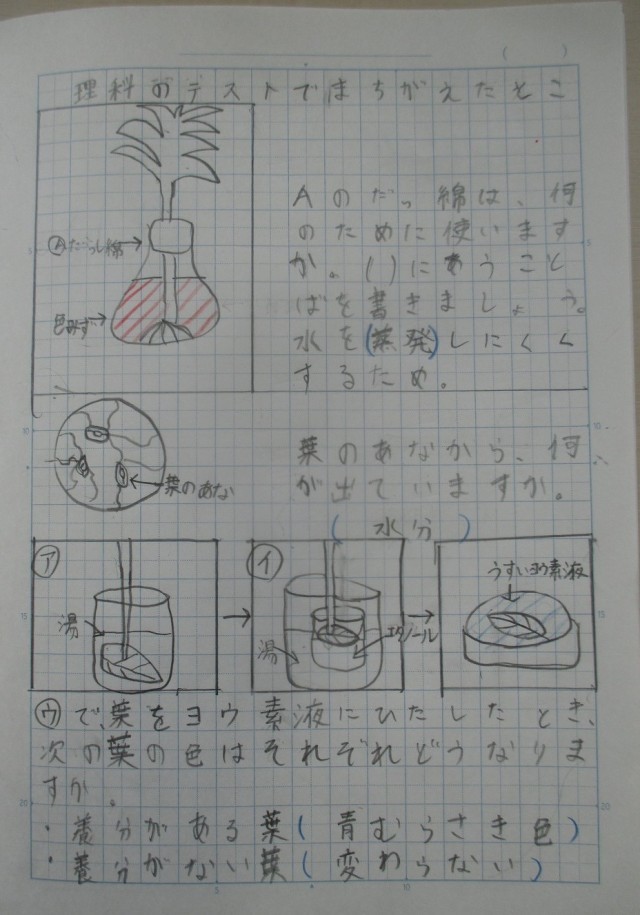 理科のテストでまちがえたとこ
Aのだっ綿は、何
のために使います
か。()にあうこと
ばを書きましょう。
水を(蒸発)しにくく
するため。
Ⓐだっし綿
色みず
葉のあなから、何
が出ていますか。
(水分)
葉のあな
㋐
湯
㋑
湯
エタノール
うすいヨウ素液
㋒で、葉をヨウ素液にひたしたとき、
次の葉の色はそれぞれどうなりま
すか。
・養分がある葉(青むらさき色)
・養分がない葉(変わらない)